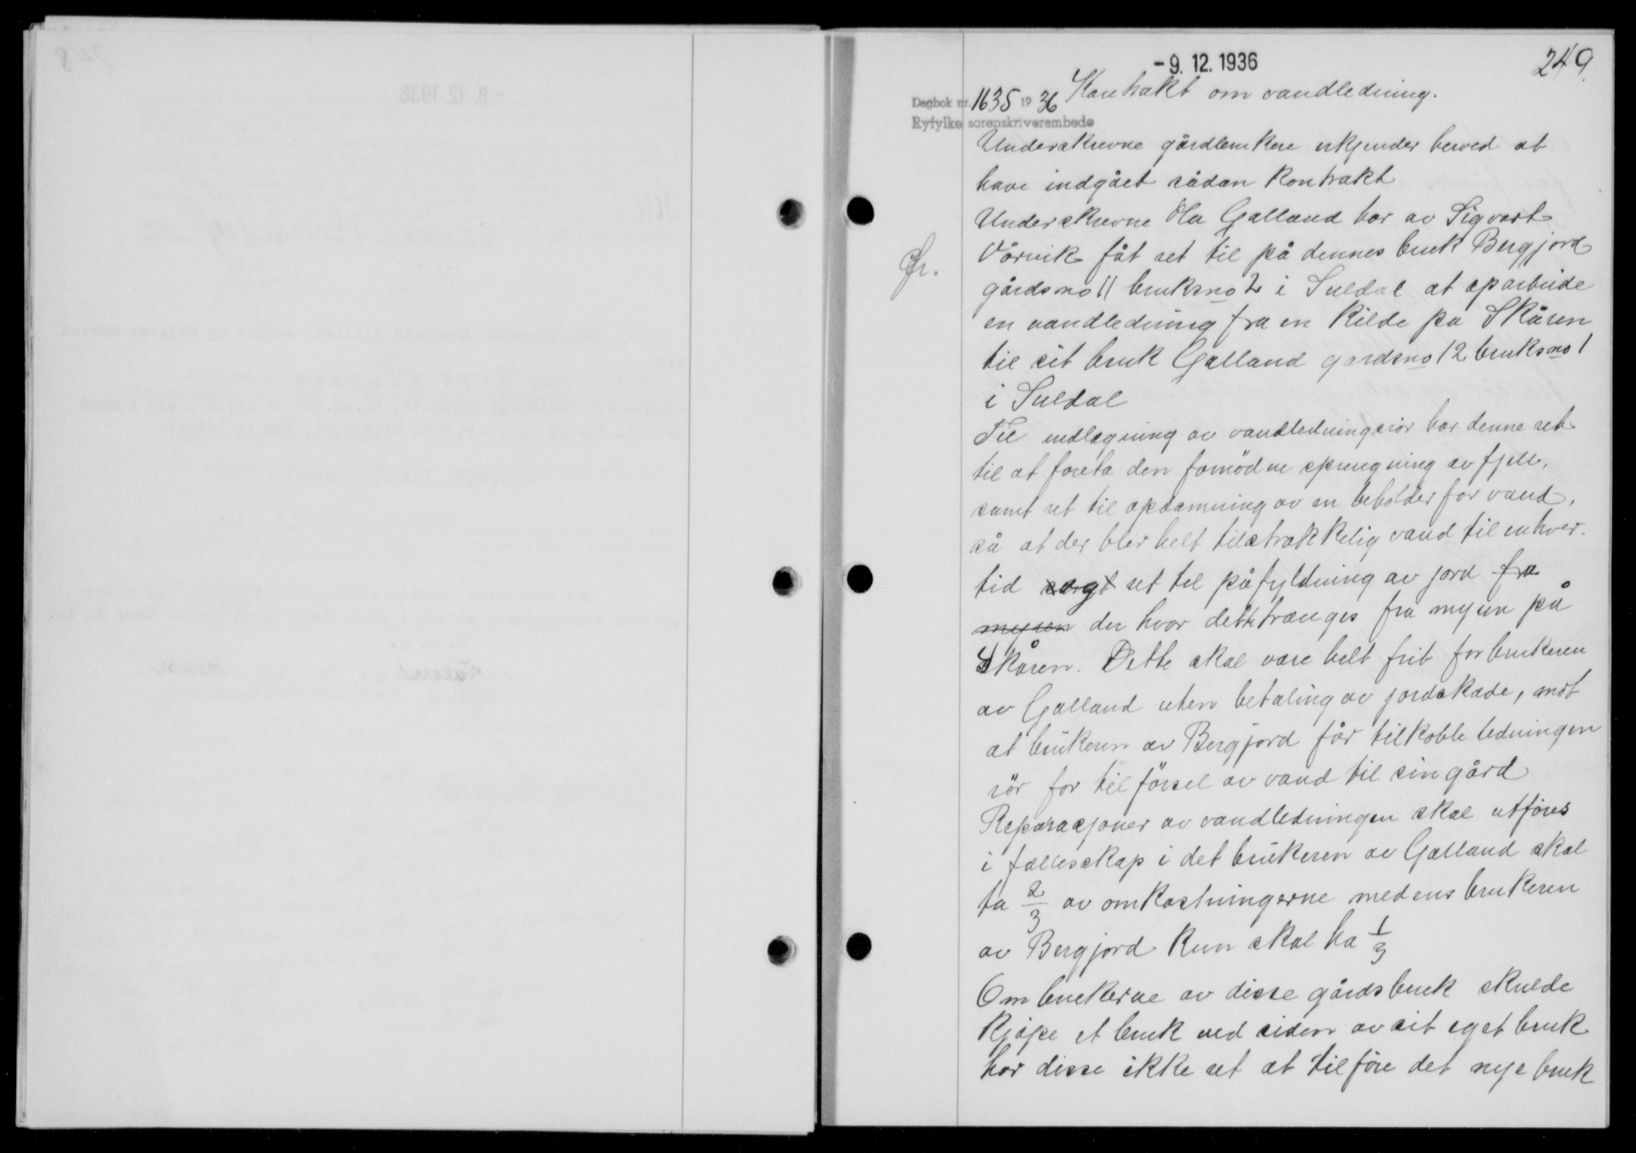 249.
- 9. 12. 1936
Kontrakt om vandledning.
Dagbok nr. 1635 1936
Ryfylke sorenskriverembede
Underskrevne gårdbrukere erkjender herved at
have indgået sådan kontrakt
Underskrevne Ola Galland har av Sigvart
Vårvik fåt ret til på dennes bruk Bergjord
gårdsno 11 bruksno 2 i Suldal at oparbeide
en vandledning fra en kilde på Skåren
til sit bruk Galland gardsno 12 bruksno 1
i Suldal
Til nedlægning av vandledningsrör har denne ret
til at foreta den fornödne sprengning av fjell,
samt ret til opdæmning av en beholder for vand,
så at der blir helt tilstrækkelig vand til enhver.
tid ret til påfyldning av jord fra
myren der hvor det trænges fra myren på
Skåren. Dette skal være helt frit for brukeren
av Galland uten betaling av jordskade, mot
at brukeren av Bergjord får tilkoble ledningen
rör for tilförsel av vand til sin gård
Reparasjoner av vandledningen skal utföres
i fællesskap i det brukeren av Galland skal
ta 2/3 av omkostningerne medens brukeren
av Bergjord kun skal ha 1/3
Om brukerne av disse gårdsbruk skulde
kjöpe et bruk ved siden av sit eget bruk
har disse ikke ret at tilföre det nye bruk